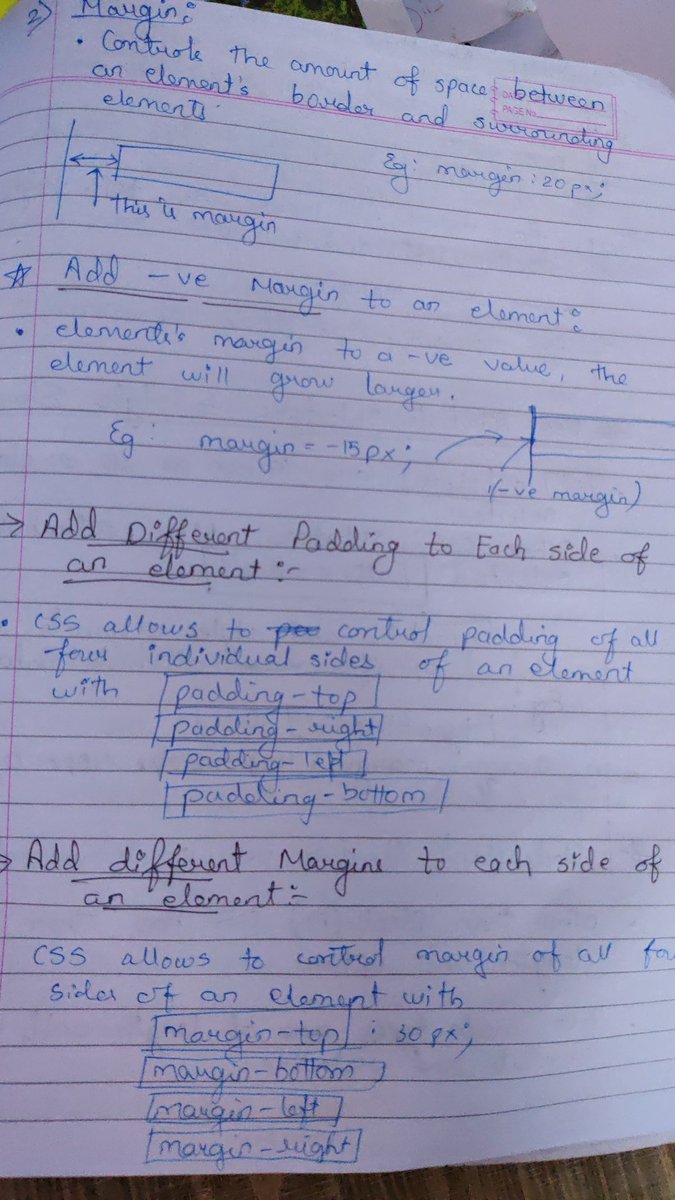 2) Margin:
• Controls the amount of space between
an element's border and surrounding
elements.
PAGE NO.
Eg: margin: 20px;
This is margin
☆ Add -ve Margin to an element:
• elements's margin to a -ve value, the
element will grow larger.
Eg: margin = -15px;
(-ve margin)
→ Add Different Padding to Each side of
an element:-
• CSS allows to control padding of all
four individual sides of an element
with padding-top
padding-right
padding-left
padding-bottom
→ Add different Margins to each side of
an element:-
CSS allows to control margin of all fou
sides of an element with
margin-top : 30px;
margin-bottom
margin-left
margin-right